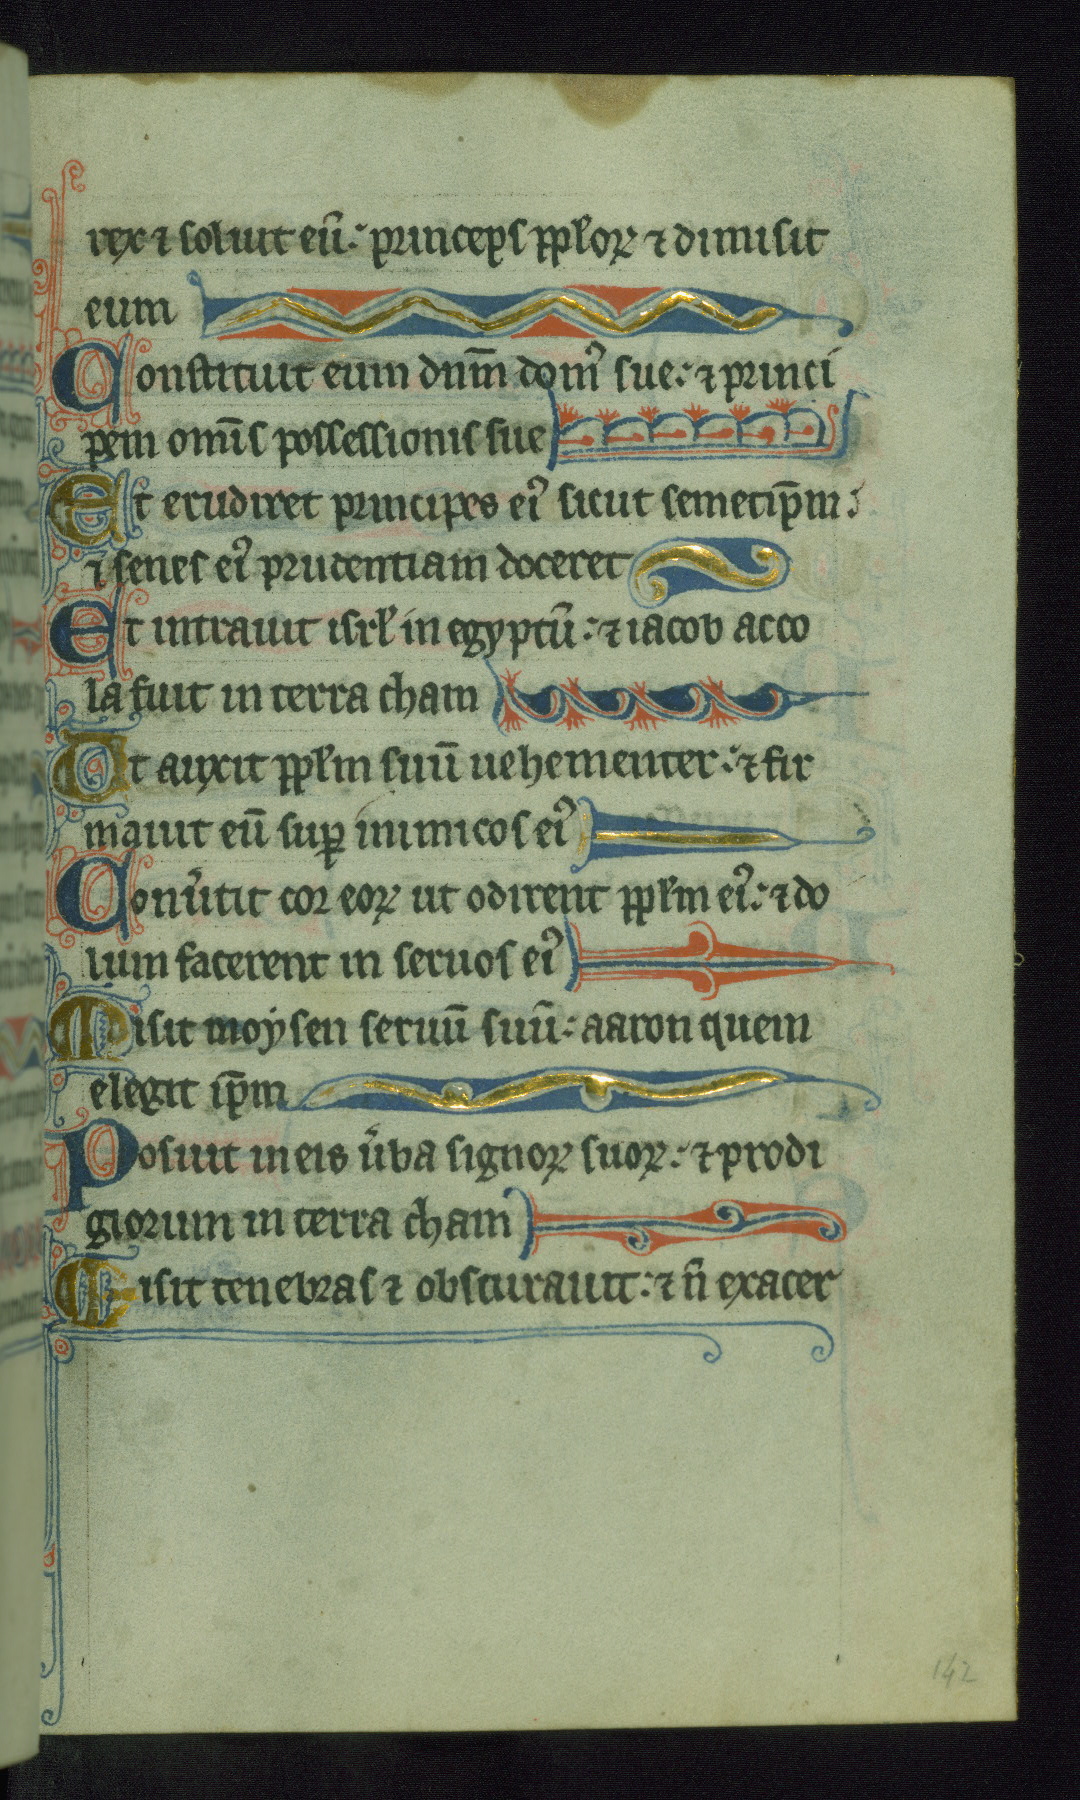 rex ⁊ soluit eū: princeps pp̄loꝝ ⁊ dimisit
eum
Constituit eum dn̄m domꝰ sue: ⁊ princi
pem om̄is possessionis sue
Et erudiret principes eiꝰ sicut semetip̄m:
⁊ senes eiꝰ prudentiam doceret
Et intrauit isrł in egyptū: ⁊ iacob acco
la fuit in terra cham
Et auxit pp̄lm suū uehementer: ⁊ fir
mauit eū suꝑ inimicos eiꝰ
Conu̾tit cor eoꝝ ut odirent pp̄lm eiꝰ: ⁊ do
lum facerent in seruos eiꝰ
Misit moysen seruū suū: aaron quem
elegit ip̄m
Posuit in eis u̾ba signoꝝ suoꝝ: ⁊ prodi
giorum in terra cham
Misit tenebras ⁊ obscurauit: ⁊ n̄ exacer
142